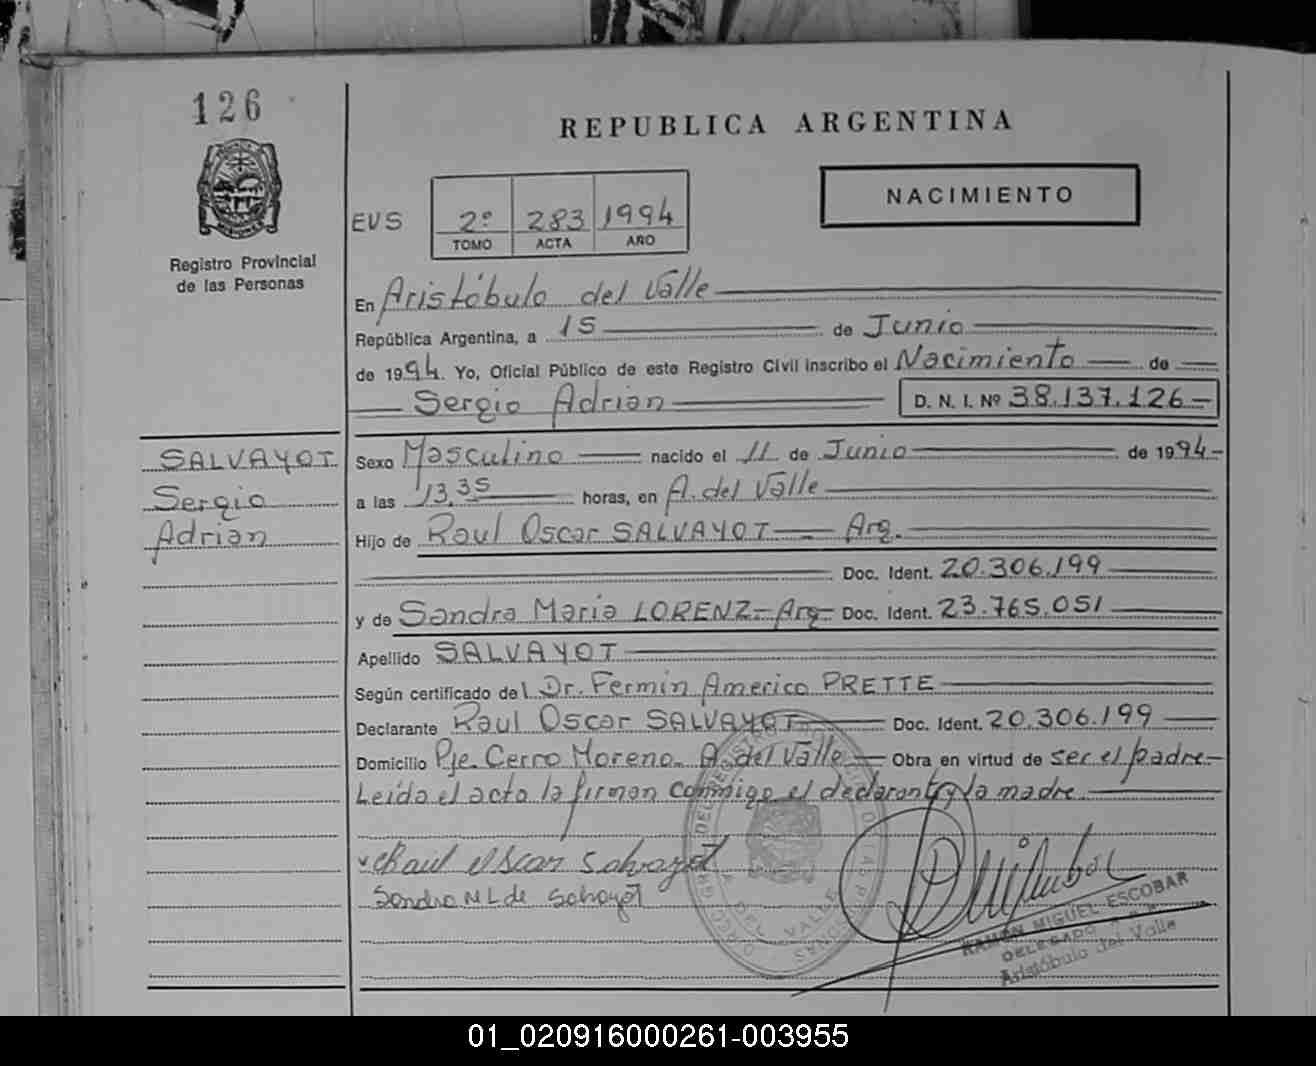 126
REPUBLICA ARGENTINA
NACIMIENTO
EVS 2º 283 1994
TOMO ACTA AÑO
Registro Provincial
de las Personas
En Aristóbulo del Valle
República Argentina, a 15 de Junio
de 1994. Yo, Oficial Público de este Registro Civil inscribo el Nacimiento de
Sergio Adrian D. N. I. Nº 38.137.126
SALVAYOT
Sergio
Adrian
Sexo Masculino nacido el 11 de Junio de 1994
a las 13,35 horas, en A. del Valle
Hijo de Raul Oscar SALVAYOT Arg.
Doc. Ident. 20.306.199
y de Sandra Maria LORENZ - Arg Doc. Ident. 23.765.051
Apellido SALVAYOT
Según certificado del Dr. Fermin Americo PRETTE
Declarante Raul Oscar SALVAYOT Doc. Ident. 20.306.199
Domicilio Pje. Cerro Moreno. A. del Valle Obra en virtud de ser el padre
Leída el acta la firman conmigo el declarante y la madre.
Raul Oscar Salvayot
Sandra M L de Salvayot
RAMON MIGUEL ESCOBAR
DELEGADO
Aristóbulo del Valle
01_020916000261-003955